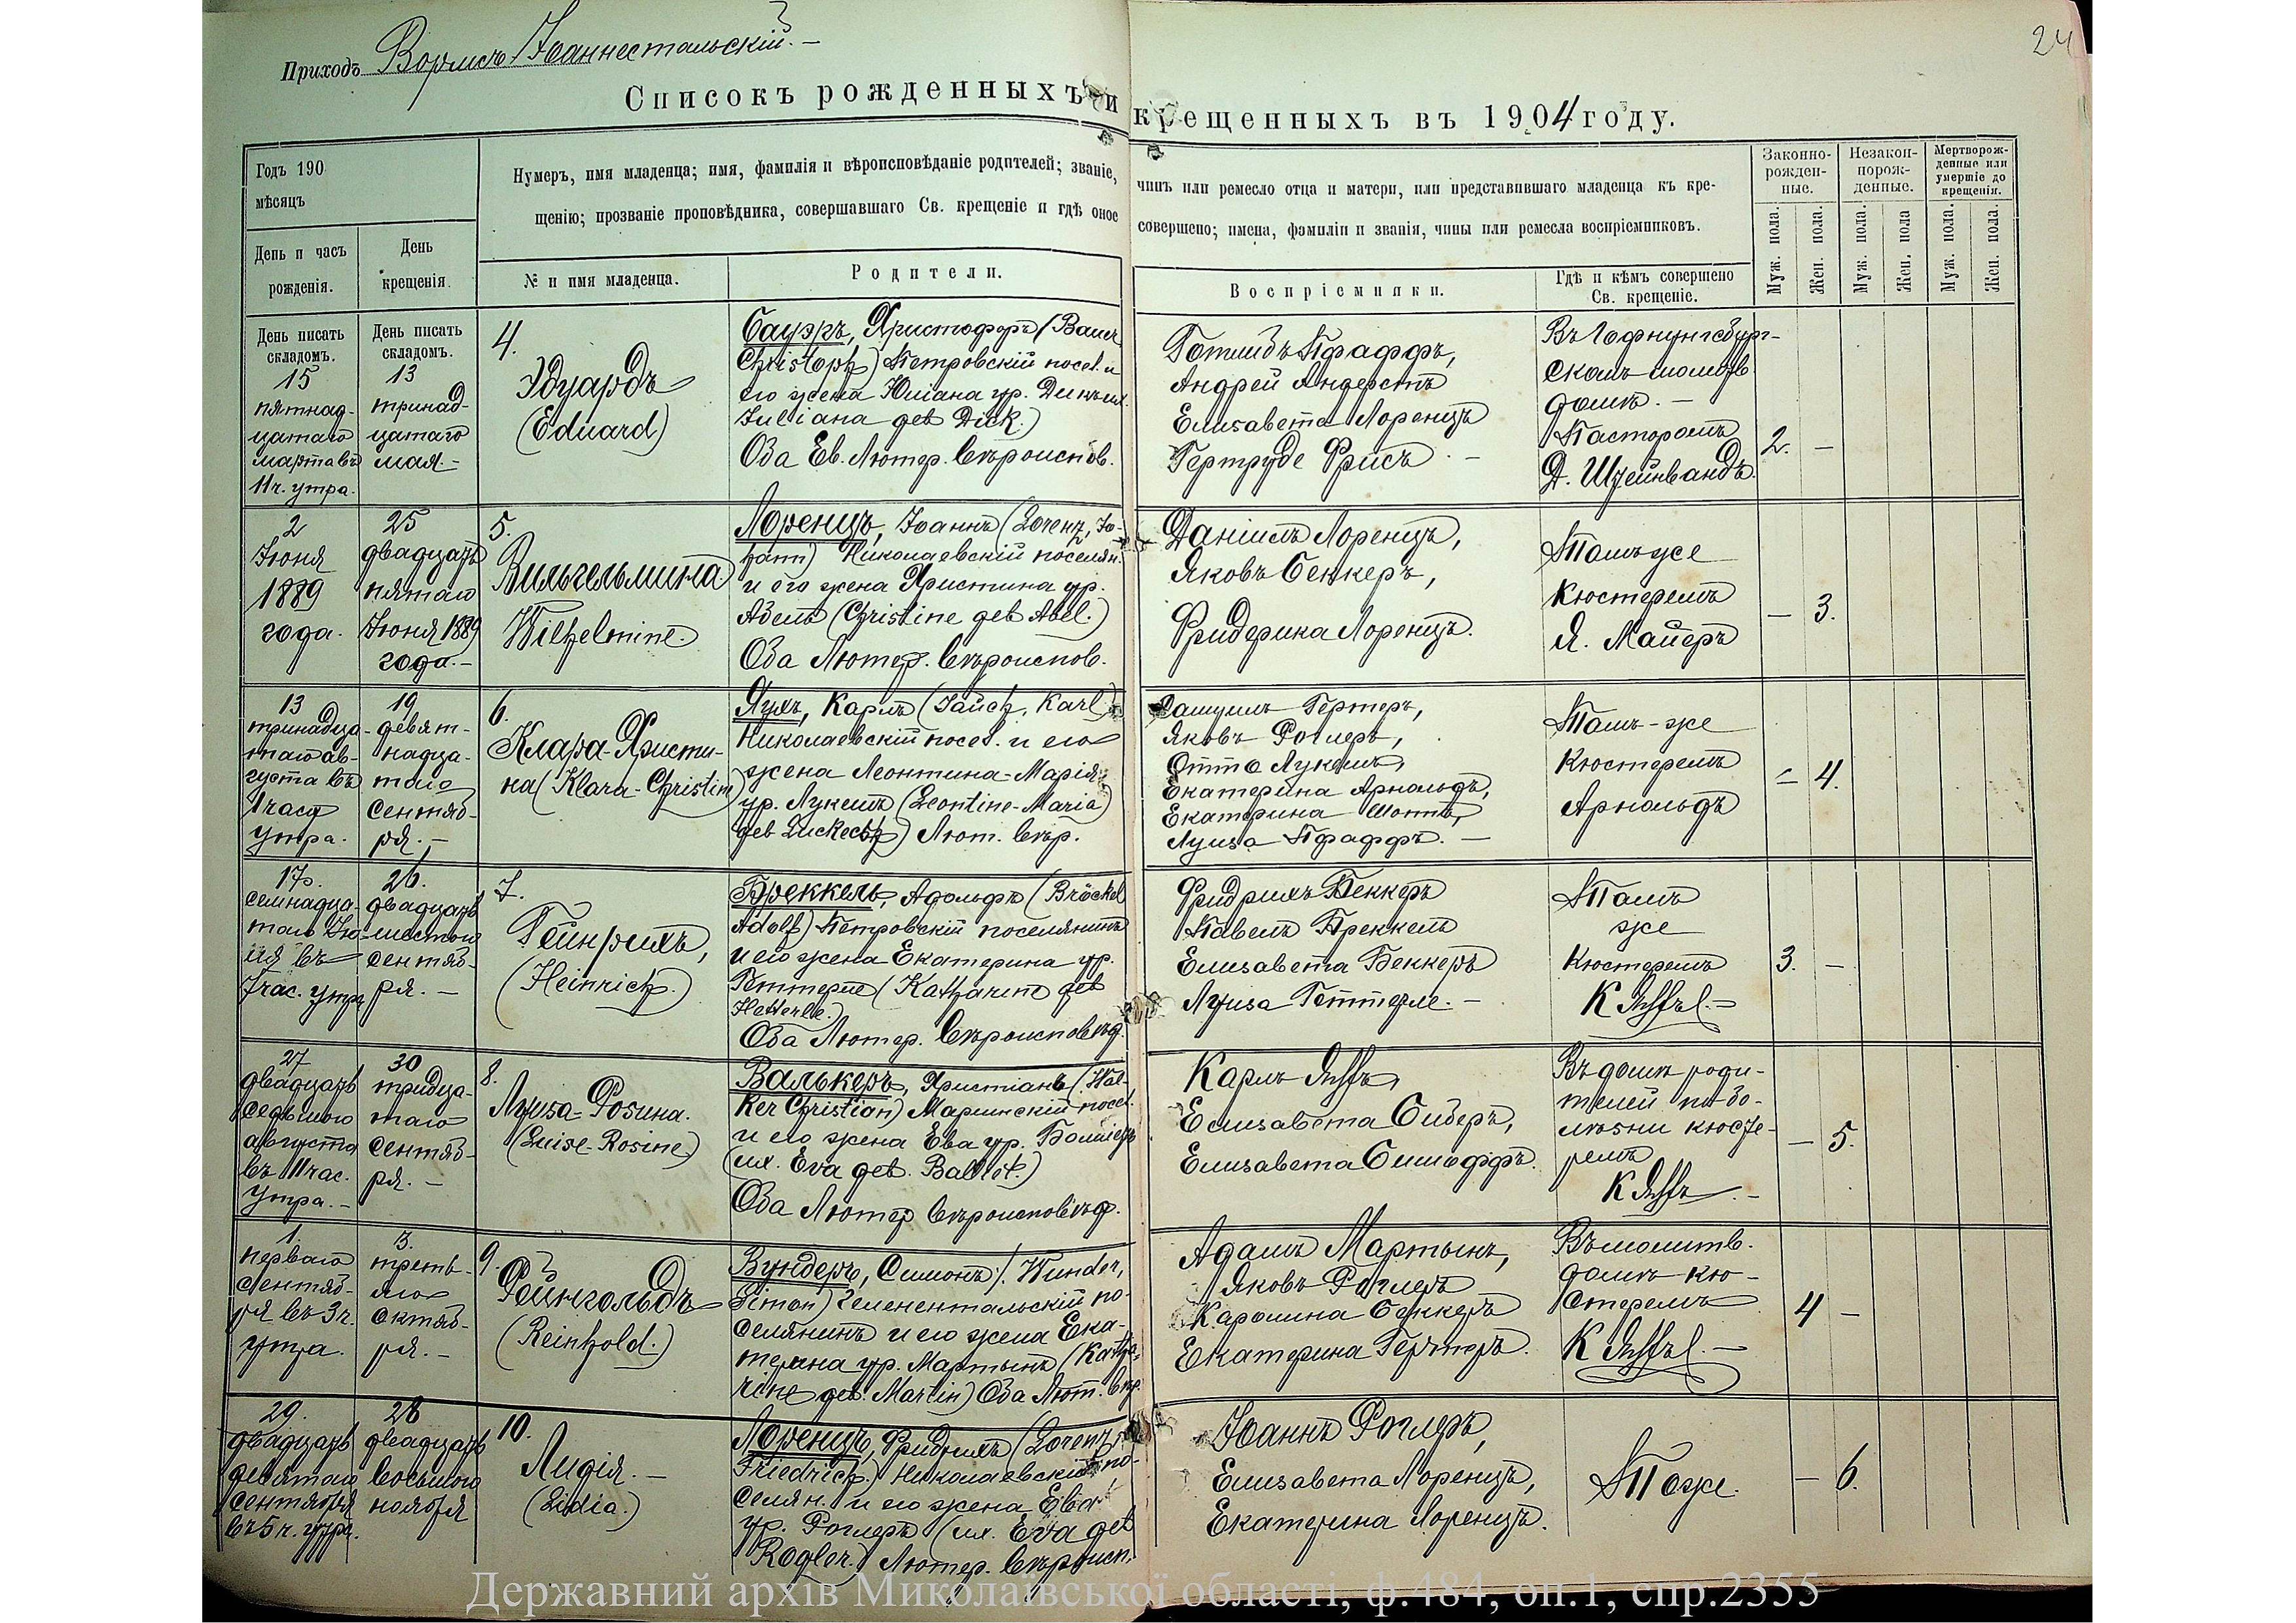 24
Приходъ Вормсъ Іоаннестальскій.–
Списокъ рожденныхъ и крещенныхъ въ 1904 году.
Годъ 190
мѣсяцъ
День и часъ
рожденія.
День
крещенія.
Нумеръ, имя младенца; имя, фамилія и вѣроисповѣданіе родителей; званіе, чинъ или ремесло отца и матери, или представившаго младенца къ кре-
щенію; прозваніе проповѣдника, совершавшаго Св. крещеніе и гдѣ оное совершено; имена, фэмиліи и званія, чины или ремесла воспріемниковъ.
№ и имя младенца.
Родители.
Воспріемники.
Гдѣ и кѣмъ совершено
Св. крещеніе.
Законно-
рожден-
ные.
Незакон-
норож-
денные.
Мертворож-
денные или
умершіе до
крещенія.
Муж. пола.
Жен. пола.
Муж. пола.
Жен. пола
Муж. пола.
Жен. пола.
День писать
складомъ.
15
пятнад-
цатаго
марта въ
11 ч. утра.
День писать
складомъ.
13
тринад-
цатаго
мая.–
4.
Эдуардъ
(Eduard)
Бауэръ, Христофоръ (Bauer
Christoph) Петровскій посел. и
его жена Юліана ур. Дикъ
Juliana geb Dick.)
Оба Ев. Лютер. вѣроиспов.
Готлибъ Пфаффъ,
Андрей Андерстъ
Елисавета Лоренцъ
Гертруде Фрисъ –
Въ Гофнунгсбург-
скомъ молитв.
домѣ.–
Пасторомъ
Д. Штейнвандъ.
2. –
2
Іюня
1889
года.
25
двадцать
пятаго
Іюня 1889
года.–
5.
Вильгельмина
Wilhelmine.
Лоренцъ, Іоаннъ (Lorenz, Jo-
hann) Николаевскій поселян.
и его жена Христина ур.
Абель (Christine geb Abel.)
Оба Лютер. вѣроиспов.
Даніилъ Лоренцъ,
Яковъ Беккеръ,
Фридерика Лоренцъ.
Тамъ же
Кюстеремъ
Я. Майеръ
– 3.
13
тринадца-
таго ав-
густа въ
1 часъ
утра.
19
девят-
надца-
таго
сентяб-
ря.–
6.
Клара-Христи-
на (Klara-Christine)
Яухъ, Карлъ (Jauch, Karl)
Николаевскій посел. и его
жена Леонтина-Марія
ур. Лукетъ (Leontine-Maria
geb) Лют. вѣр.
Самуилъ Гертеръ,
Яковъ Роглеръ,
Отто
Екатерина Арнольдъ,
Екатерина Шоттъ,
Луиза Пфаффъ. –
Тамъ-же
Кюстеремъ
Арнольдъ
– 4.
17.
семнадца-
таго Ію-
ля въ
7 час. утр.
26.
двадцать
шестого
сентяб-
ря.–
7.
Гейнрихъ,
(Heinrich.)
Бреккель, Адольфъ (Bröckel
Adolf) Петровскій поселянинъ
и его жена Екатерина ур.
Геттерле (Katharine geb
Hetterle.)
Оба Лютер. вѣроисповѣд.
Фридрихъ Беккеръ
Павелъ Преккель
Елисавета Беккеръ
Луиза Геттерле.–
Тамъ
же
Кюстеремъ
3. –
27
двадцать
седьмого
августа
въ 11 час.
утра.–
30
тридца-
таго
сентяб-
ря.–
8.
Луиза-Росина.
(Luise-Rosine)
Валькеръ, Христіанъ (Wal-
ker Christian) Маріинскій посел.
и его жена Ева ур.
Оба Лютер вѣроисповѣд.
Карлъ
Елисавета Сиберъ,
Елисавета
Въ домѣ роди-
телей по бо-
лѣзни кюсте-
ремъ
– 5.
1.
перваго
сентяб-
ря въ 3 ч.
утра.
3.
треть-
яго
октяб-
ря.–
9.
Рейнгольдъ
(Reinhold.)
Вундеръ, Симонъ (Wunder,
Simon) Геленентальскій по-
селянинъ и его жена Ека-
терина ур. Мартынъ (Katha-
rine geb. Martin) Оба Лют. вѣр.
Адамъ Мартынъ,
Яковъ Роглеръ
Каролина Беккеръ
Екатерина Гертеръ.
Въ молитв.
домѣ кю-
стеремъ
4 –
29.
двадцать
девятаго
сентября
въ 5 ч. утра.
28
двадцать
восьмого
ноября
10.
Лидія.–
(Lidia.)
Лоренцъ, Фридрихъ (Lorenz,
Friedrich.) Николаевскій по-
селян. и его жена Ева
ур. Роглеръ (Eva geb
Rogler.) Лютер. вѣроисп.
Іоаннъ Роглеръ,
Елисавета Лоренцъ,
Екатерина Лоренцъ.
Тоже.
– 6.
Державний архів Миколаївської області, ф.484, оп.1, спр.2355